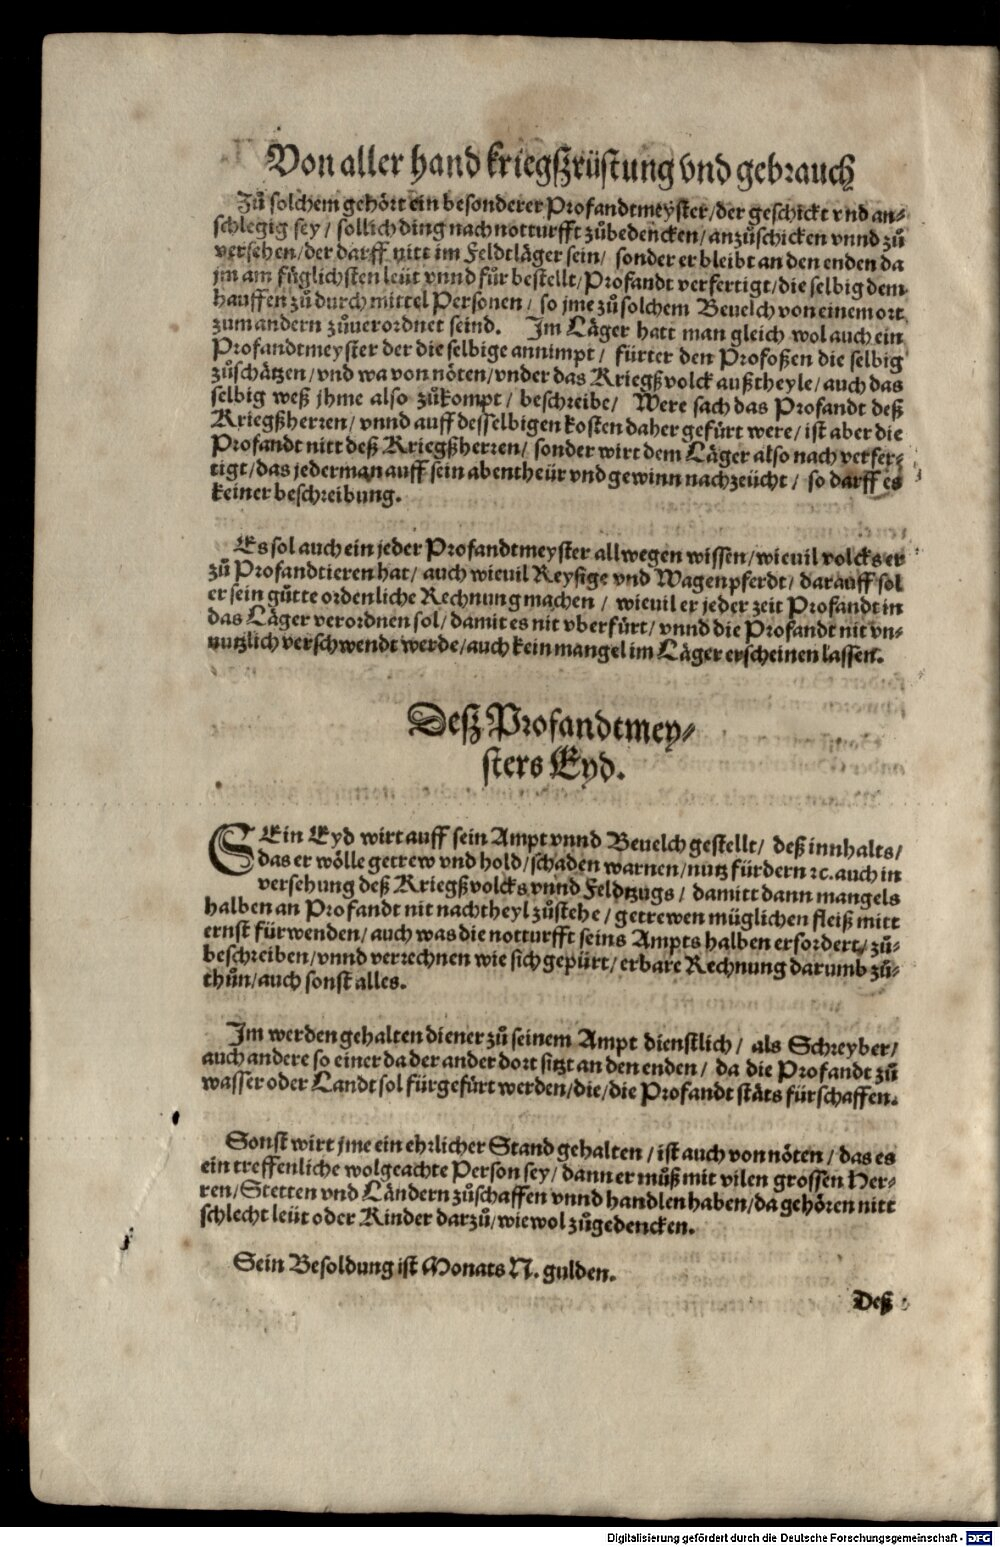 Von aller hand kriegßrüstung vnd gebrauch
Zů solchem gehört ein besonderer Profandtmeyster/der geschickt vnd an-
schlegig sey/ sollich ding nach notturfft zůbedencken/anzůschicken vnnd zů
versehen/der darff nitt im Feldtläger sein/ sonder er bleibt an den enden da
jm am füglichsten leüt vnnd fůr bestellt/Profandt verfertigt/die selbig dem
hauffen zů durch mittel Personen/ so jme zů solchem Beuelch von einem ort
zum andern zůuerordnet seind. Im Läger hatt man gleich wol auch ein
Profandtmeyster der die selbige annimpt/ fürter den Profoßen die selbig
zůschätzen/vnd wa von nöten/vnder das Kriegßvolck außtheyle/auch das
selbig weß jhme also zůkompt/ beschreibe/ Were sach das Profandt deß
Kriegßherren/vnnd auff desselbigen kosten daher gefürt were/ist aber die
Profandt nitt deß Kriegßherren/sonder wirt dem Läger also nach verfer-
tigt/das jederman auff sein abentheür vnd gewinn nachzeücht/ so darff es
keiner beschreibung.
Es sol auch ein jeder Profandtmeyster allwegen wissen/wieuil volcks er
zů Profandtieren hat/auch wieuil Reysige vnd Wagenpferdt/darauff sol
er sein gůtte ordenliche Rechnung machen/ wieuil er jeder zeit Profandt in
das Läger verordnen sol/damit es nit vberfürt/vnnd die Profandt nit vn-
nutzlich verschwendt werde/auch kein mangel im Läger erscheinen lassen.
Deß Profandtmey-
sters Eyd.
SEin Eyd wirt auff sein Ampt vnnd Beuelch gestellt/ deß innhalts/
das er wölle getrew vnd hold/schaden warnen/nutz fürdern ꝛc. auch in
versehung deß Kriegßvolcks vnnd Feldtzugs/ damitt dann mangels
halben an Profandt nit nachtheyl zůstehe/getrewen müglichen fleiß mitt
ernst fürwenden/auch was die notturfft seins Ampts halben erfordert/zů-
beschreiben/vnnd verrechnen wie sich gepürt/erbare Rechnung darumb zů-
thůn/auch sonst alles.
Im werden gehalten diener zů seinem Ampt dienstlich/ als Schreyber/
auch andere so einer da der ander dort sitzt an den enden/ da die Profandt zů
wasser oder Landt sol fürgefürt werden/die/die Profandt stäts fürschaffen.
Sonst wirt jme ein ehrlicher Stand gehalten/ist auch von nöten/das es
ein treffenliche wolgeachte Person sey/dann er můß mit vilen grossen Her-
ren/Stetten vnd Ländern zůschaffen vnnd handlen haben/da gehören nitt
schlecht leüt oder Kinder darzů/wie wol zůgedencken.
Sein Besoldung ist Monats N. gulden.
Deß
Digitalisierung gefördert durch die Deutsche Forschungsgemeinschaft - DFG